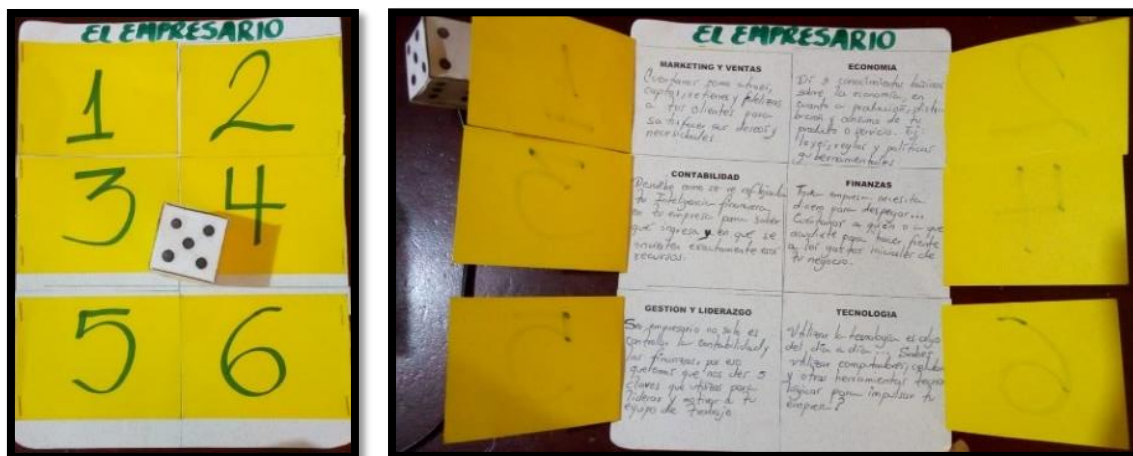 EL EMPRESARIO
1 2
3 4
5 6
EL EMPRESARIO
MARKETING Y VENTAS
Cuentanos como atraes,
captas, retienes y fidelizas
a tus clientes para
satisfacer sus deseos y
necesidades
ECONOMIA
Di 3 conocimientos básicos
sobre la economía, en
cuanto a producción, distri-
bución y consumo de tu
producto o servicio. Ej:
leyes, reglas y políticas
gubernamentales
CONTABILIDAD
Describe como se ve reflejada
tu Inteligencia financiera
en tu empresa para saber
que ingresa y en que se
invierten exactamente esos
recursos.
FINANZAS
Toda empresa necesita
dinero para despegar...
Cuentanos a quien o a que
acudiste para hacer frente
a los gastos iniciales de
tu negocio.
GESTION Y LIDERAZGO
Ser empresario no solo es
controlar la contabilidad y
las finanzas, por eso
queremos que nos des 3
claves que utilizas para
liderar y motivar a tu
equipo de trabajo
TECNOLOGIA
Utilizar la tecnología es algo
del día a día... Sabes
utilizar computadores, celular
y otras herramientas tecno
lógicas para impulsar tu
empresa?